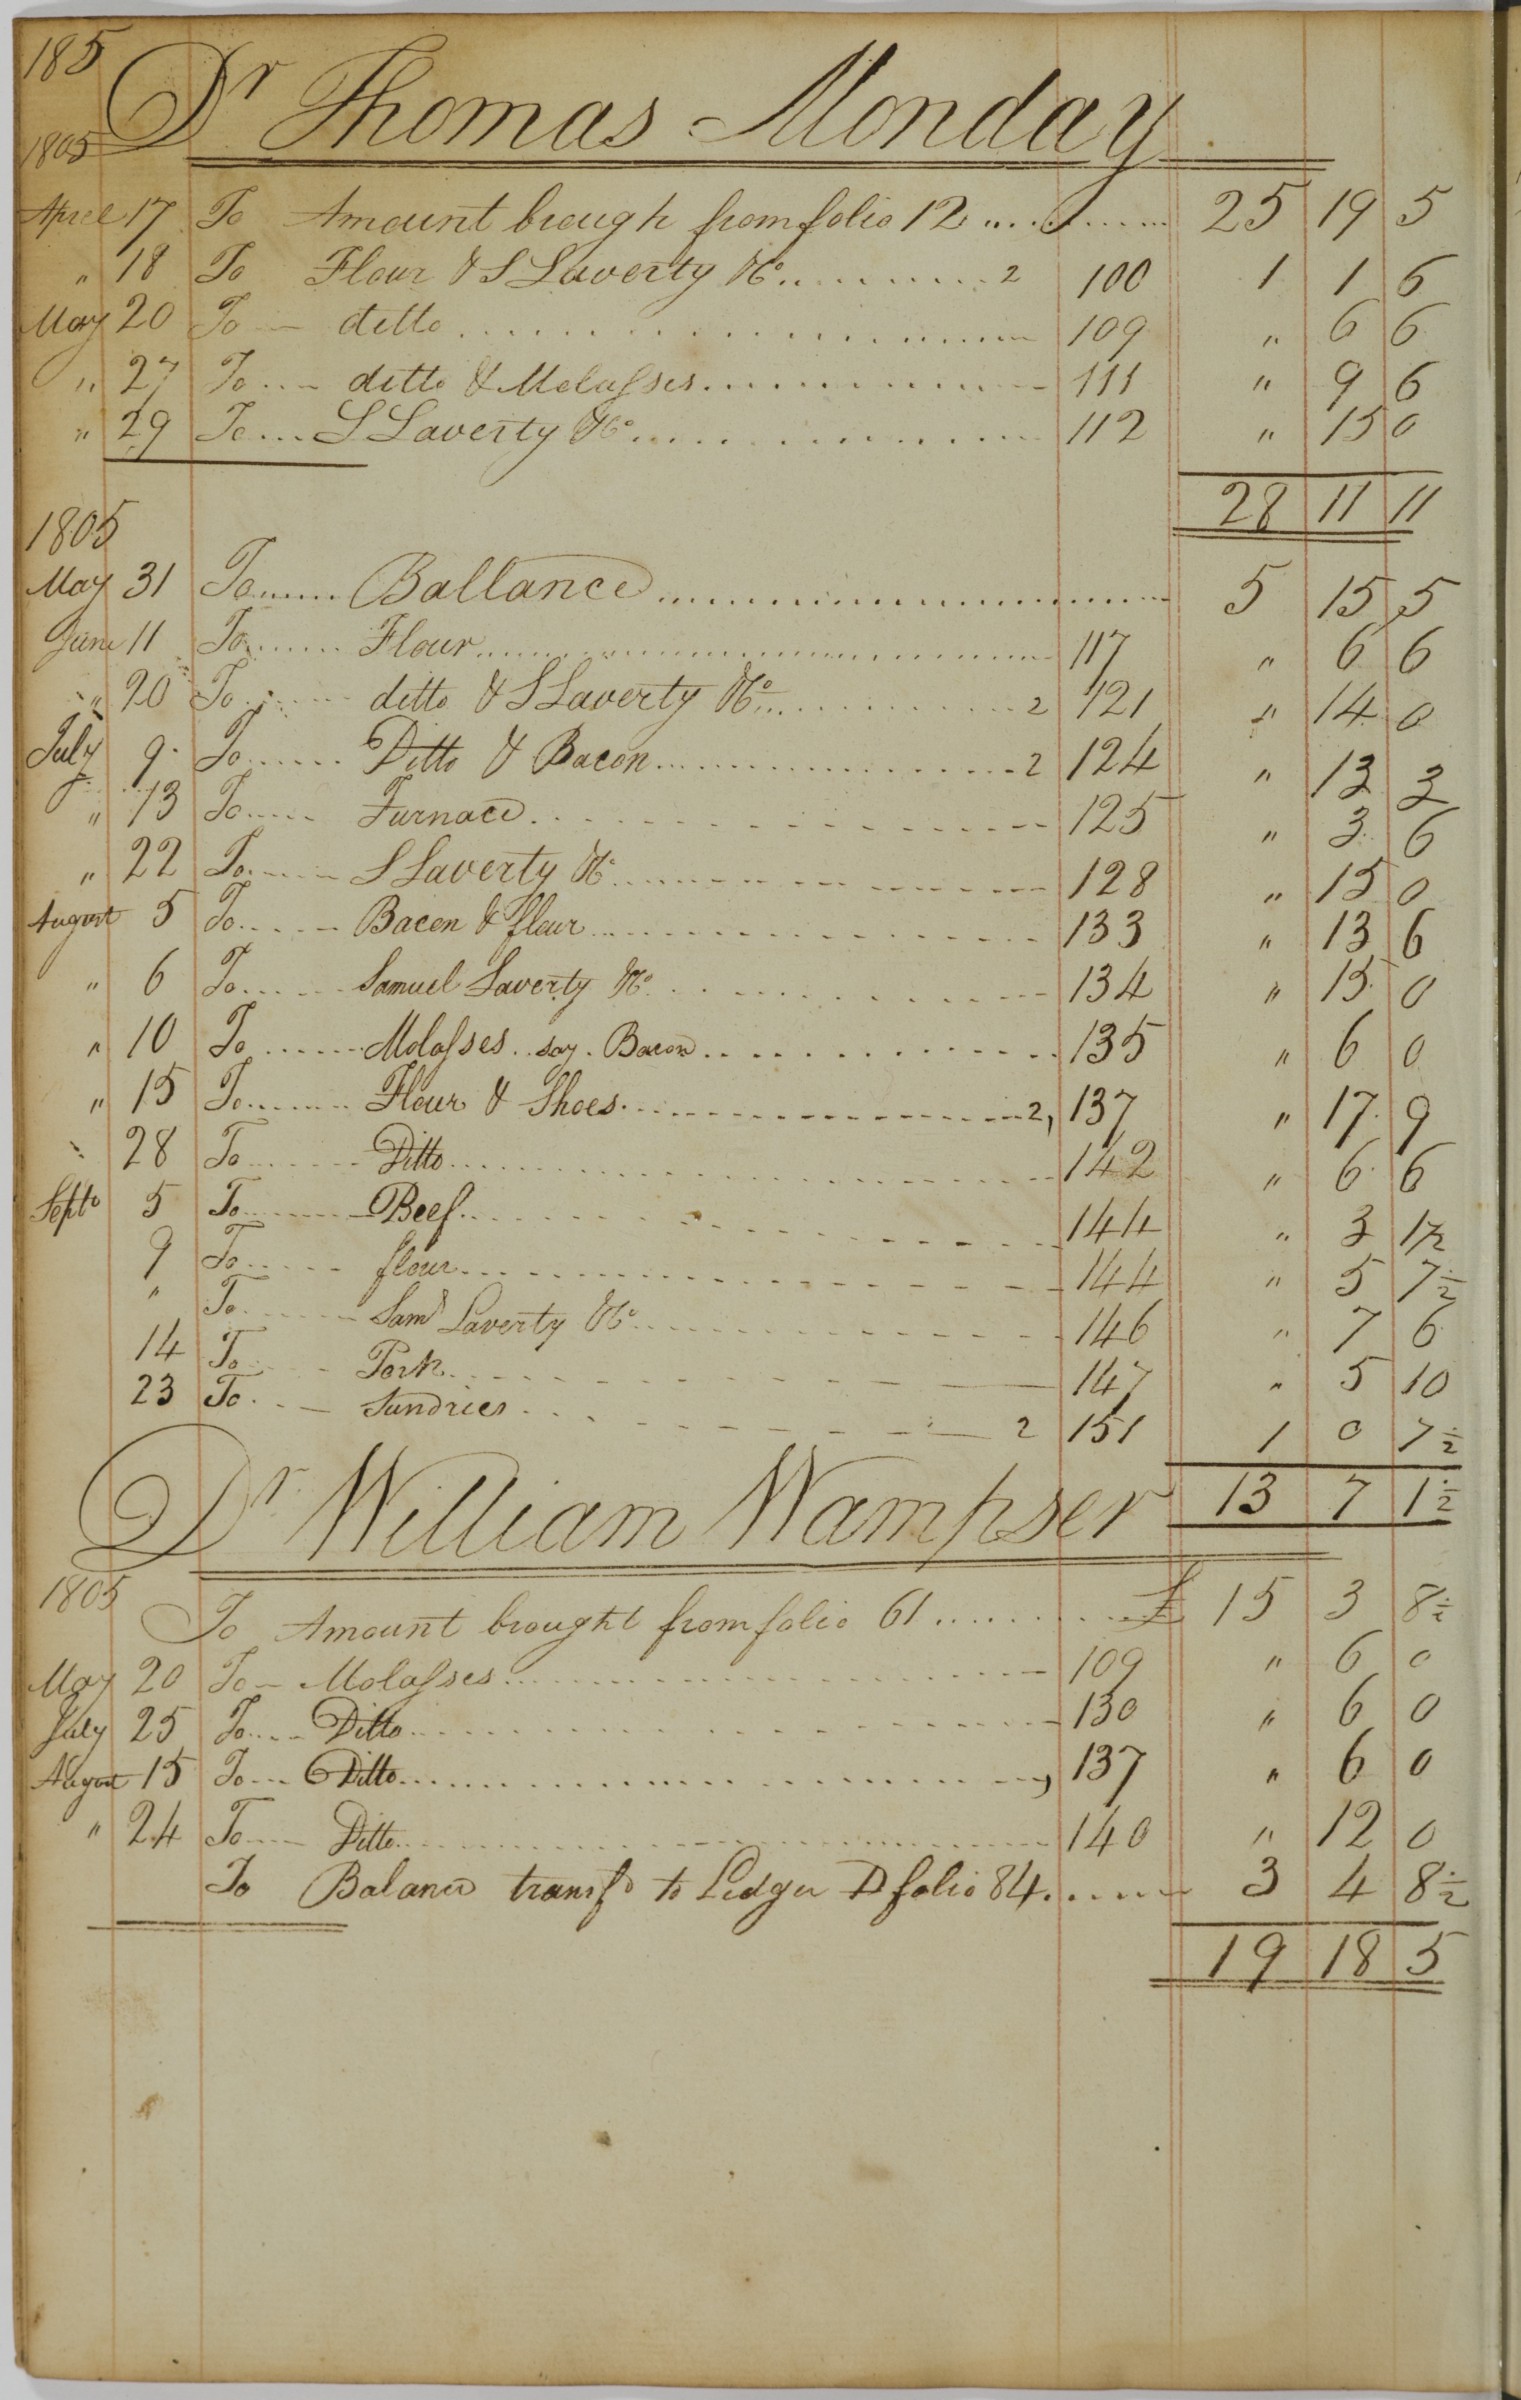 185
Dr Thomas Monday
1805
April 17 To Amount brough from folio 12 25 19 5
" 18 To Flour & S Laverty &Co 2 100 1 1 6
May 20 To ditto 109 " 6 6
" 27 To ditto & Molasses 111 " 9 6
" 29 To S Laverty &Co 112 " 15 0
28 11 11
1805
May 31 To Ballance 5 15 5
June 11 To Flour 117 " 6 6
" 20 To ditto & S Laverty &Co 2 121 " 14 0
July 9 To Ditto & Bacon 2 124 " 13 3
" 13 To Furnace 125 " 3 6
" 22 To S Laverty &Co 128 " 15 0
August 5 To Bacon & flour 133 " 13 6
" 6 To Samuel Laverty &Co 134 " 15 0
" 10 To Molasses say Bacon 135 " 6 0
" 15 To Flour & Shoes 2, 137 " 17 9
" 28 To Ditto 142 " 6 6
Septo 5 To Beef 144 " 3 1½
9 To flour 144 " 5 7½
" To Saml Laverty &Co 146 " 7 6
14 To Pork 147 " 5 10
23 To Sundries 2 151 1 0 7½
13 7 1½
Dr William Wampser
1805
To Amount brought from folio 61 £ 15 3 8½
May 20 To Molasses 109 " 6 0
July 25 To Ditto 130 " 6 0
August 15 To Ditto , 137 " 6 0
" 24 To Ditto 140 " 12 0
To Balance transfd to Ledger D folio 84 3 4 8½
19 18 5